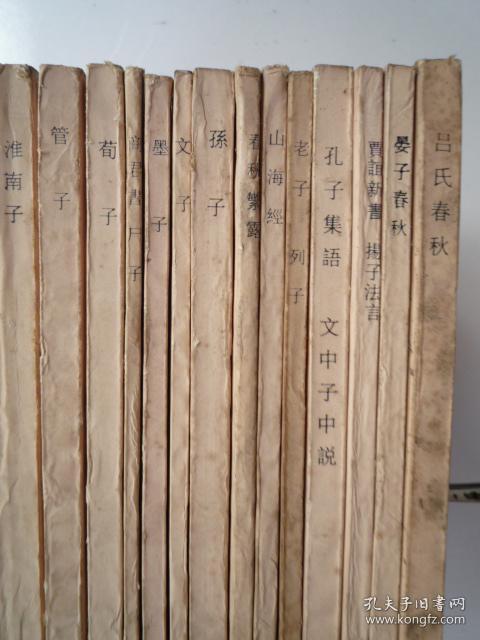 淮南子
管子
荀子
商君書 尸子
墨子
文子
孫子
春秋繁露
山海經
老子 列子
孔子集語 文中子中説
賈誼新書 揚子法言
晏子春秋
呂氏春秋
孔夫子旧书网
www.kongfz.com